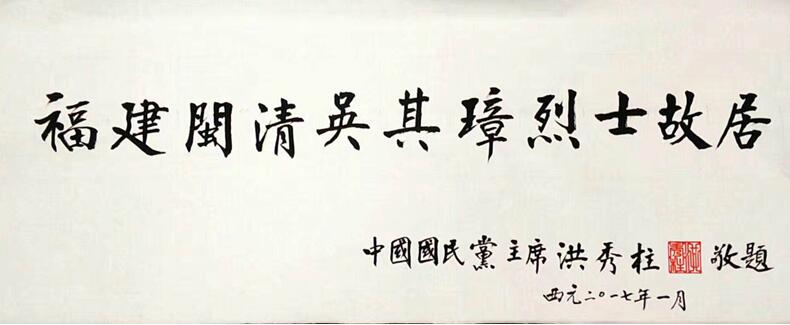 福建閩清吳其璋烈士故居
中國國民黨主席洪秀柱 敬題
西元二〇一七年一月